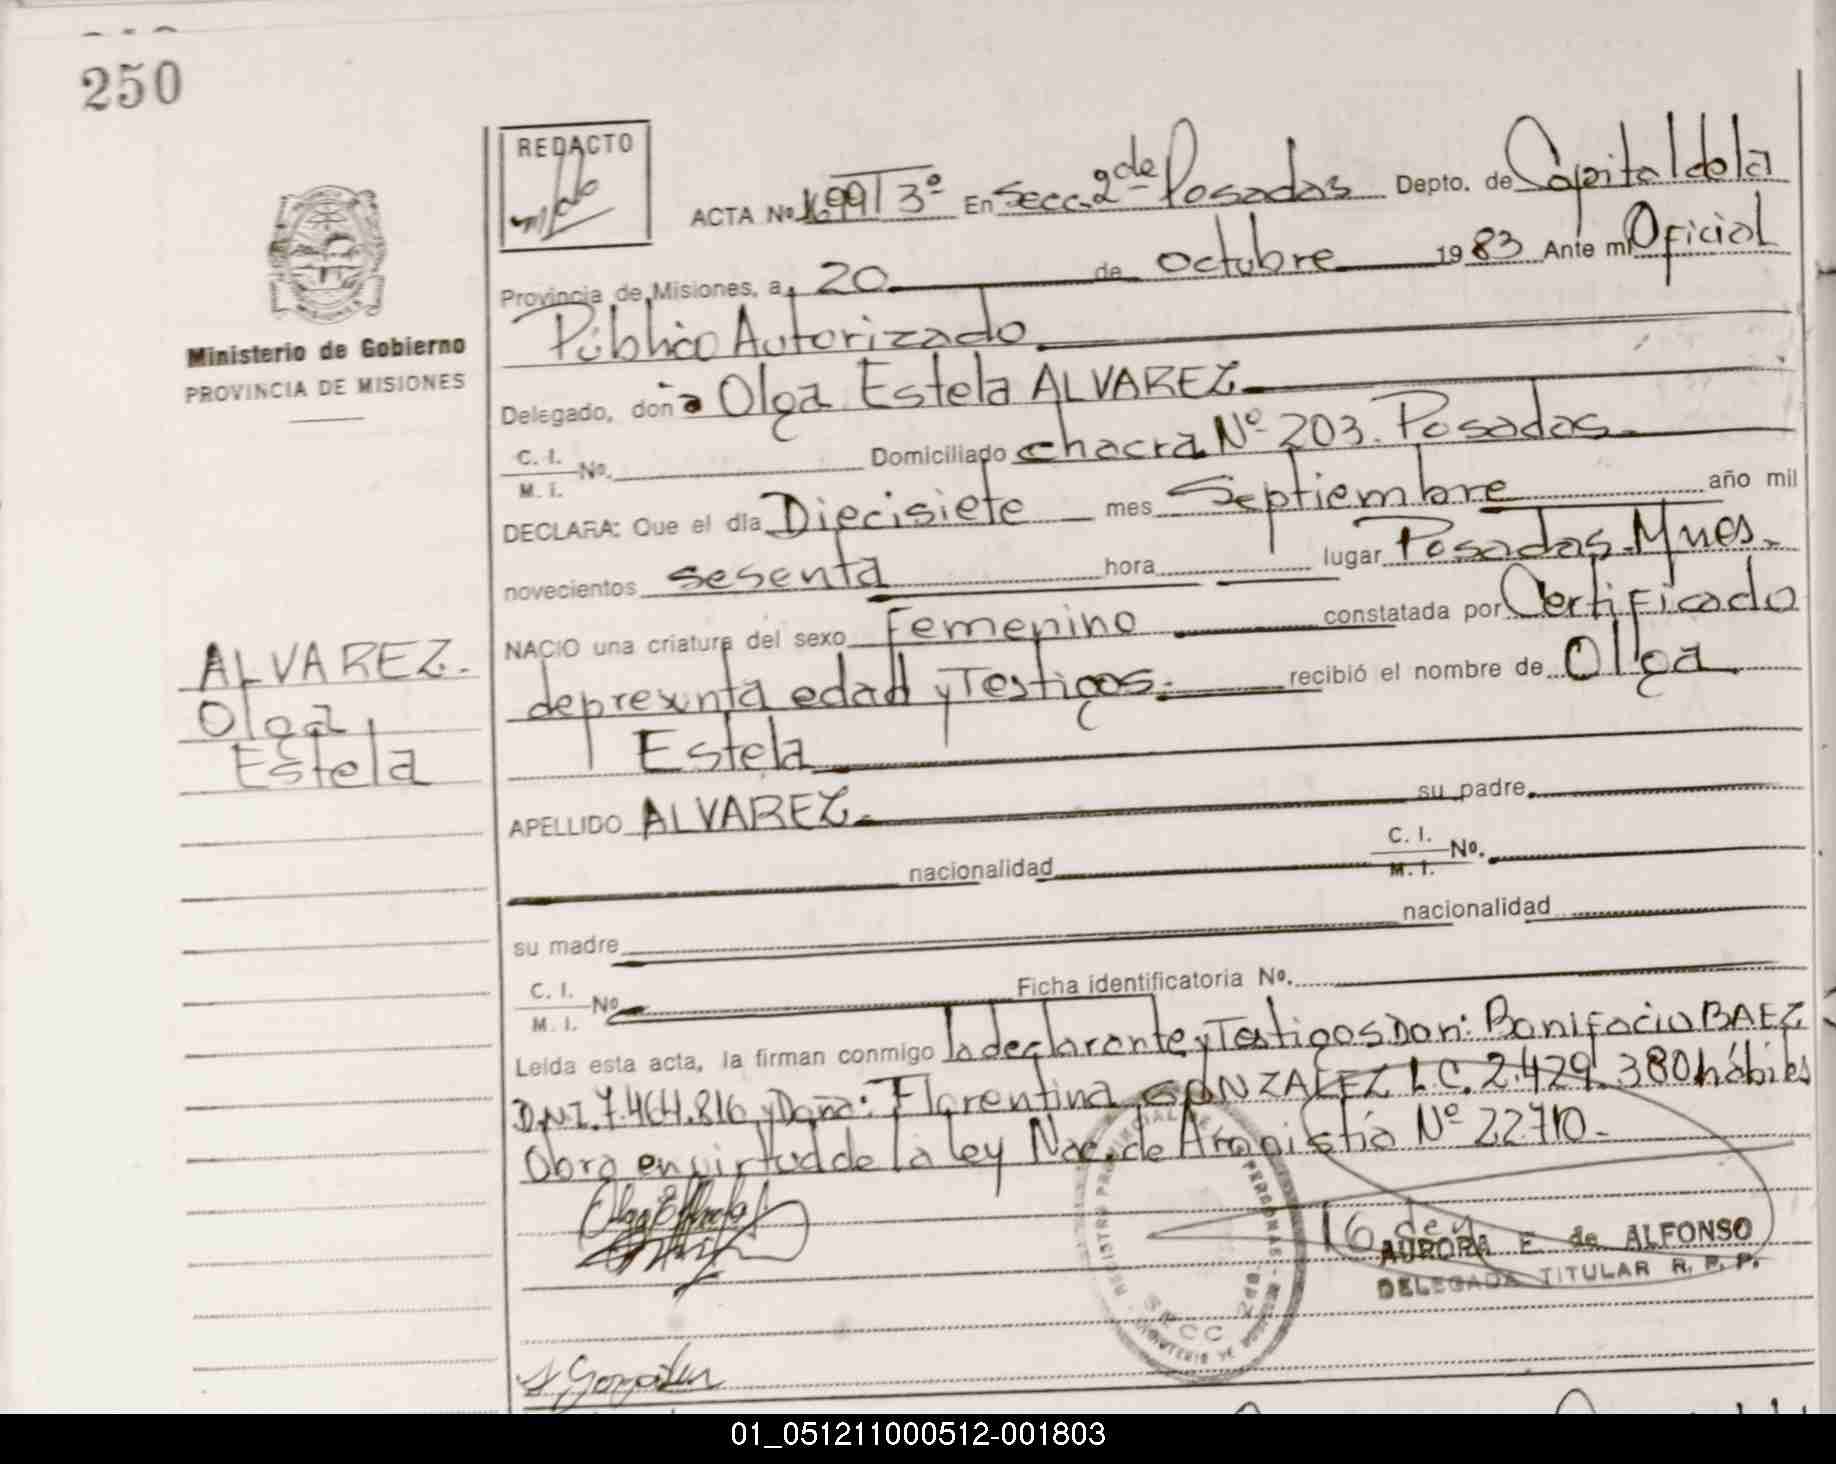 250
REDACTO
ACTA Nº 1.699 T 3º En Secc. 2da de Posadas Depto. de Capital de la
Provincia de Misiones, a 20 de octubre 1983 Ante mi Oficial
Público Autorizado
Delegado, doña Olga Estela ALVAREZ
C. I.
M. I. Nº. Domiciliado chacra Nº 203. Posadas
DECLARA: Que el día Diecisiete mes Septiembre año mil
novecientos sesenta hora lugar Posadas. Mnes.
NACIO una criatura del sexo Femenino constatada por Certificado
de presunta edad y Testigos. recibió el nombre de Olga
Estela
APELLIDO ALVAREZ su padre
nacionalidad C. I.
M. I. Nº.
su madre nacionalidad
C. I.
M. I. Nº Ficha identificatoria Nº.
Leída esta acta, la firman conmigo la declarante y Testigos Don: Bonifacio BAEZ
D.N.I. 7.464.816 y Doña: Florentina GONZALEZ L.C. 2.429.380 hábiles
Obra en virtud de la ley Nac. de Amnistía Nº 22710.
Ministerio de Gobierno
PROVINCIA DE MISIONES
ALVAREZ.
Olga
Estela
AURORA E. de ALFONSO
DELEGADA TITULAR R. P. P.
01_051211000512-001803